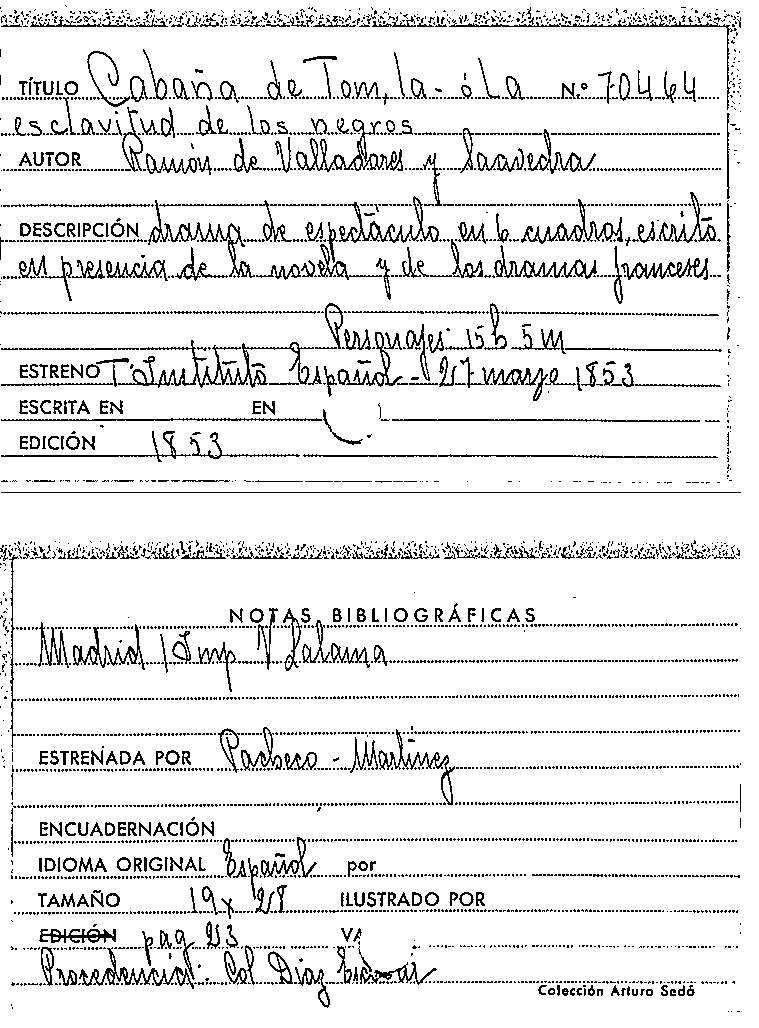 TÍTULO Cabaña de Tom, la - ó La N.º 70464
esclavitud de los negros
AUTOR Ramón de Valladares y Saavedra
DESCRIPCIÓN drama de espectáculo en 6 cuadros, escrito
en presencia de la novela y de los dramas franceses
Personajes: 15 h 5 m
ESTRENO T. Instituto Español - 27 marzo 1853
ESCRITA EN EN
EDICIÓN 1853
NOTAS BIBLIOGRÁFICAS
Madrid / Imp V Lalama
ESTRENADA POR Pacheco - Martínez
ENCUADERNACIÓN
IDIOMA ORIGINAL Español por
TAMAÑO 19 x 28 ILUSTRADO POR
EDICIÓN pag 23
Procedencia: Col Diaz Escovar
Colección Arturo Sedó